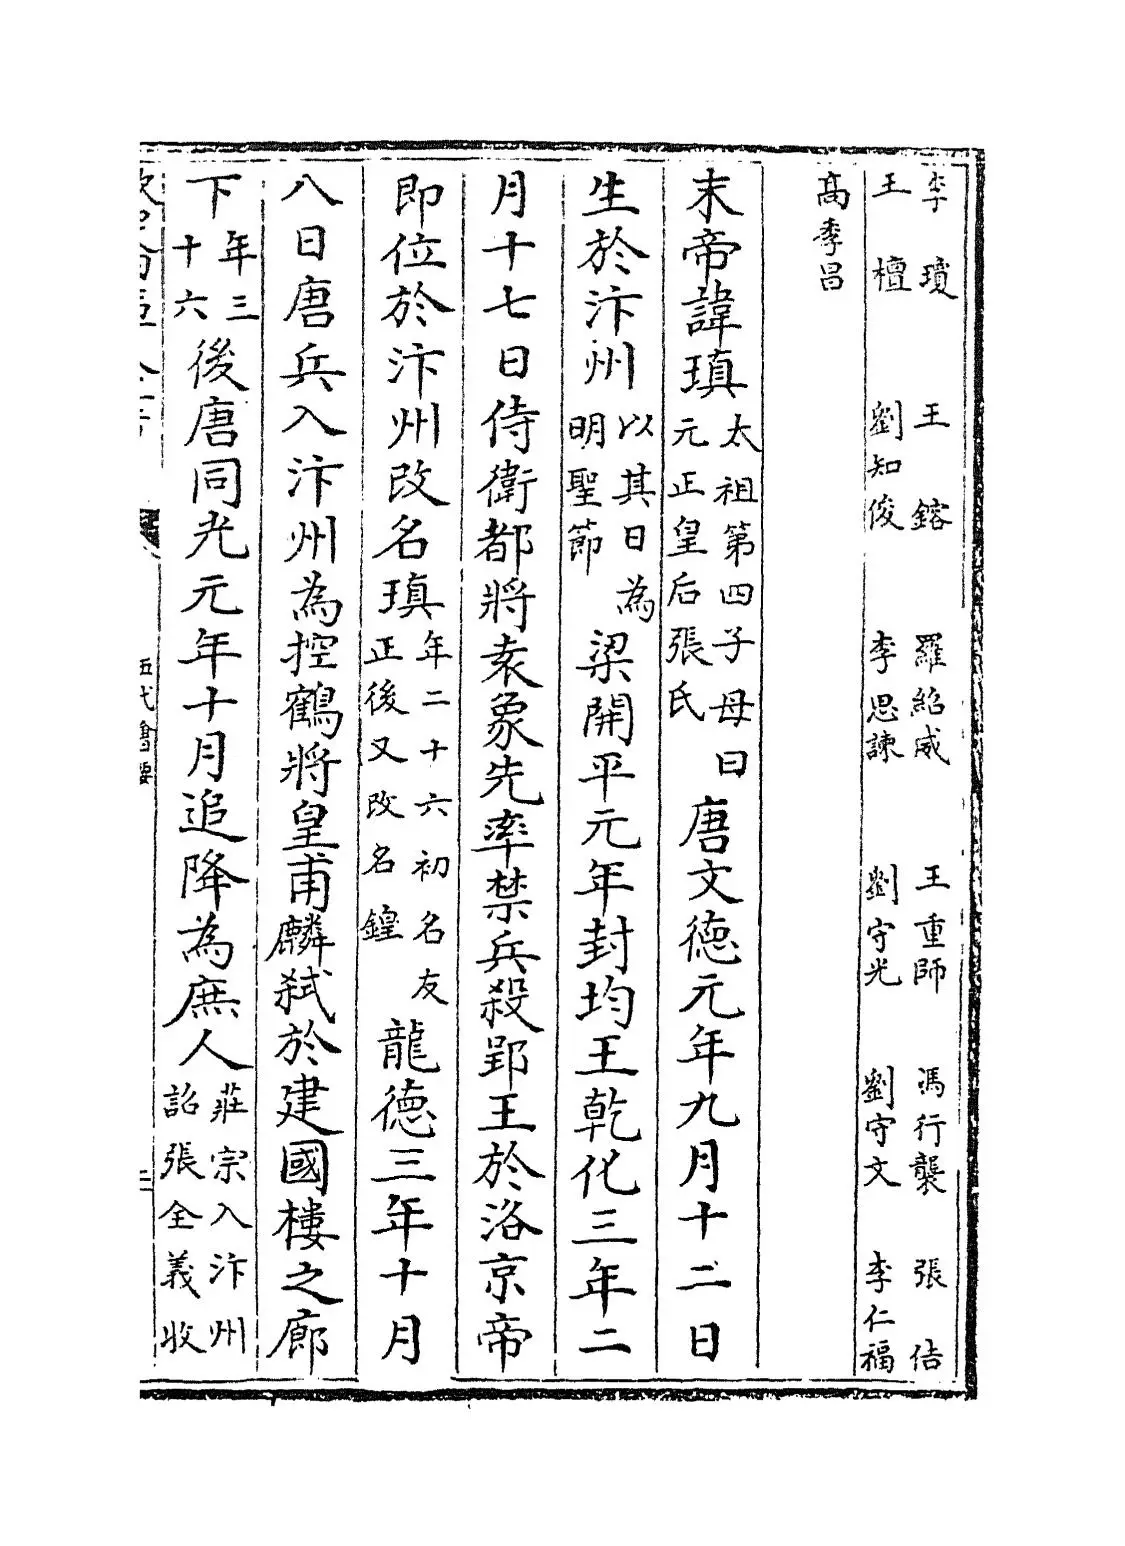 李瓊　王鎔　羅紹威　王重師　馮行襲　張佶
王檀　劉知俊　李思諫　劉守光　劉守文　李仁福
高季昌
末帝諱瑱太祖第四子母曰元正皇后張氏唐文德元年九月十二日
生於汴州以其日為明聖節梁開平元年封均王乾化三年二
月十七日侍衛都將袁象先率禁兵殺郢王於洛京帝
即位於汴州改名瑱年二十六初名友正後又改名鍠龍德三年十月
八日唐兵入汴州為控鶴將皇甫麟弑於建國樓之廊
下年三十六後唐同光元年十月追降為庶人莊宗入汴州詔張全義收
五代會要